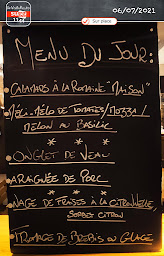 06/07/2021
Sur place
MENU DU JOUR:
CALAMARS À LA ROMAINE "MAISON"
MÉLI-MÉLO DE TOMATES/MOZZA/
MELON AU BASILIC
* *
ONGLET DE VEAU
ARAIGNÉE DE PORC
* * *
NAGE DE FRAISES À LA CITRONNELLE
SORBET CITRON
FROMAGE DE BREBIS OU GLACE